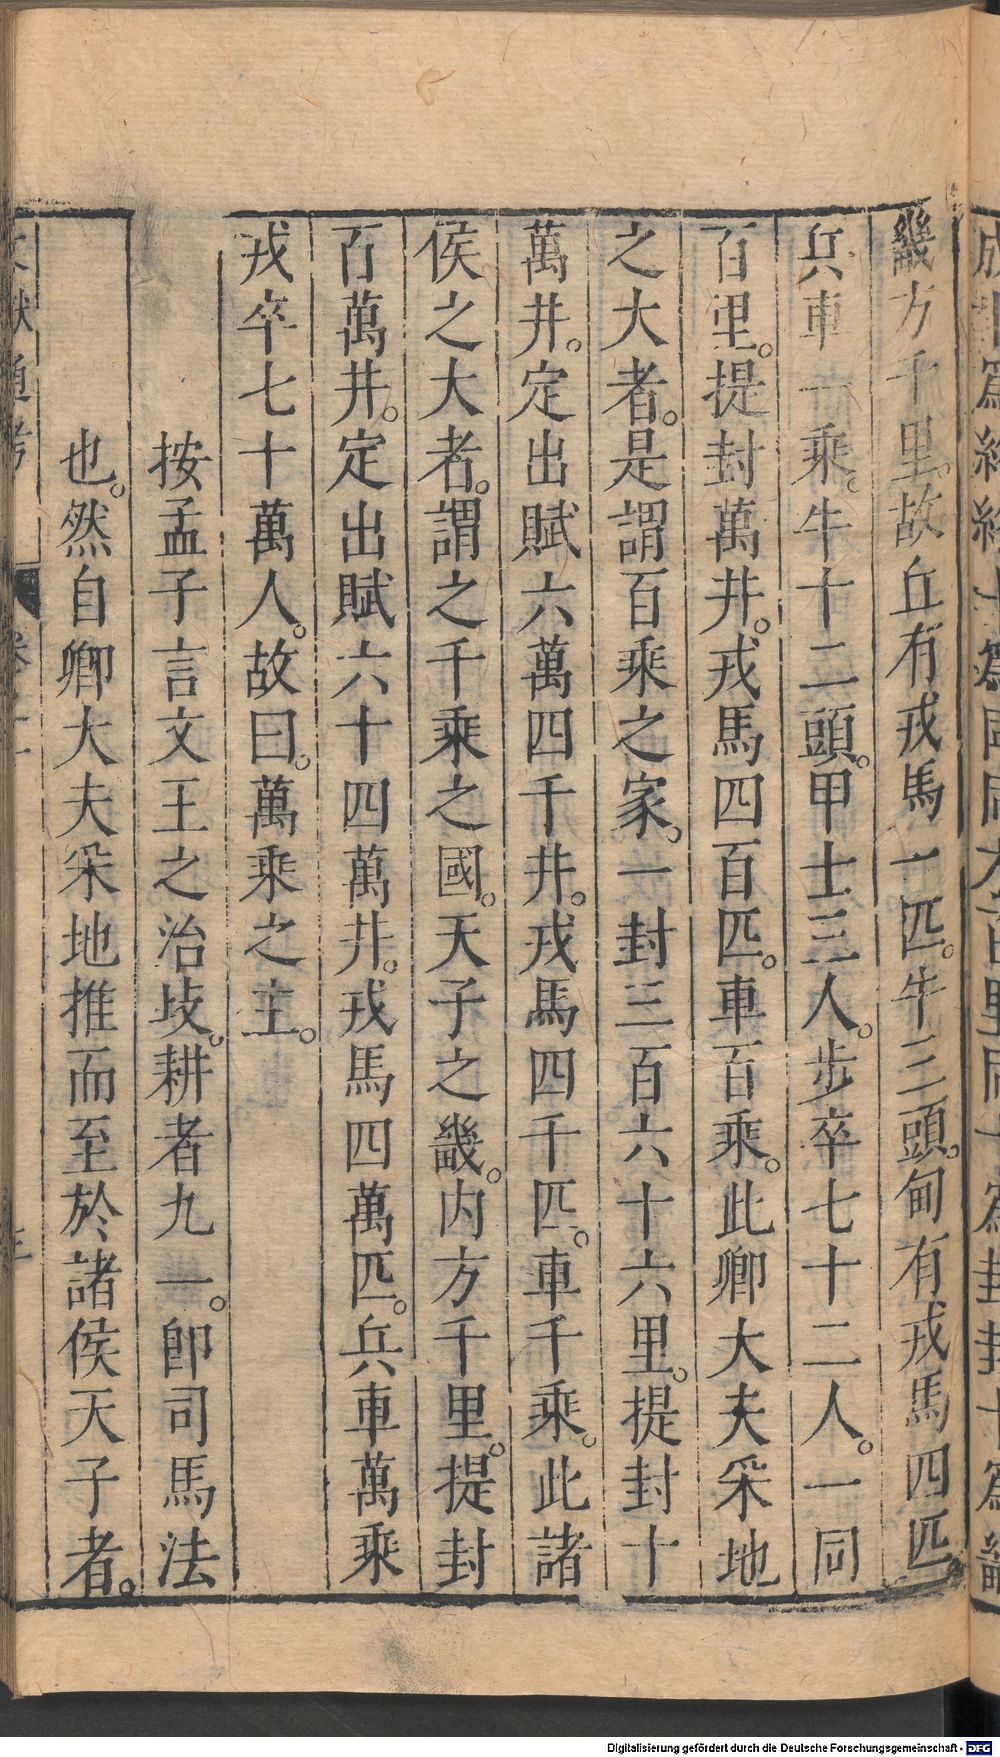 畿方千里。故丘有戎馬一匹。牛三頭。甸有戎馬四匹
兵車一乘。牛十二頭。甲士三人。步卒七十二人。一同
百里。提封萬井。戎馬四百匹。車百乘。此卿大夫采地
之大者。是謂百乘之家。一封三百六十六里。提封十
萬井。定出賦六萬四千井。戎馬四千匹。車千乘。此諸
侯之大者。謂之千乘之國。天子之畿。内方千里。提封
百萬井。定出賦六十四萬井。戎馬四萬匹。兵車萬乘
戎卒七十萬人。故曰。萬乘之主。
按孟子言文王之治歧。耕者九一。卽司馬法
也。然自卿大夫采地推而至於諸侯天子者。
文獻通考
Digitalisierung gefördert durch die Deutsche Forschungsgemeinschaft - DFG